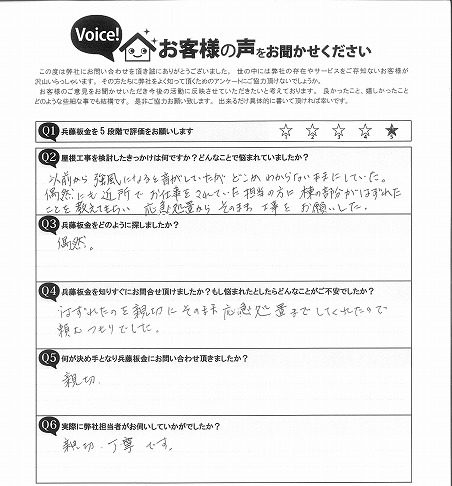 Voice!
お客様の声をお聞かせください
この度は弊社にお問い合わせを頂き誠にありがとうございました。 世の中には弊社の存在やサービスをご存知ないお客様が
沢山いらっしゃいます。 その方たちに弊社をよく知って頂くためのアンケートにご協力頂けないでしょうか。
お客様のご意見をお聞かせいただき今後の活動に反映させていただきたいと考えております。 良かったこと、嬉しかったこと
どのような些細な事でも結構です。 是非ご協力お願い致します。 出来るだけ具体的に書いて頂ければ幸いです。
Q1 兵藤板金を5段階で評価をお願いします
1 2 3 4 5
Q2 屋根工事を検討したきっかけは何ですか?どんなことで悩まれていましたか?
以前から強風になると音がしていたがどこかわからないままにしていた。
偶然にも近所でお仕事をされていた担当の方に棟の部分がはずれた
ことを教えてもらい 応急処置から そのまま 工事を お願いした。
Q3 兵藤板金をどのように探しましたか?
偶然。
Q4 兵藤板金を知りすぐにお問合せ頂けましたか?もし悩まれたとしたらどんなことがご不安でしたか?
はずれたのを親切に そのまま 応急処置までしてくれたので
頼むつもりでした。
Q5 何が決め手となり兵藤板金にお問い合わせ頂きましたか?
親切.
Q6 実際に弊社担当者がお伺いしていかがでしたか?
親切.丁寧 です。